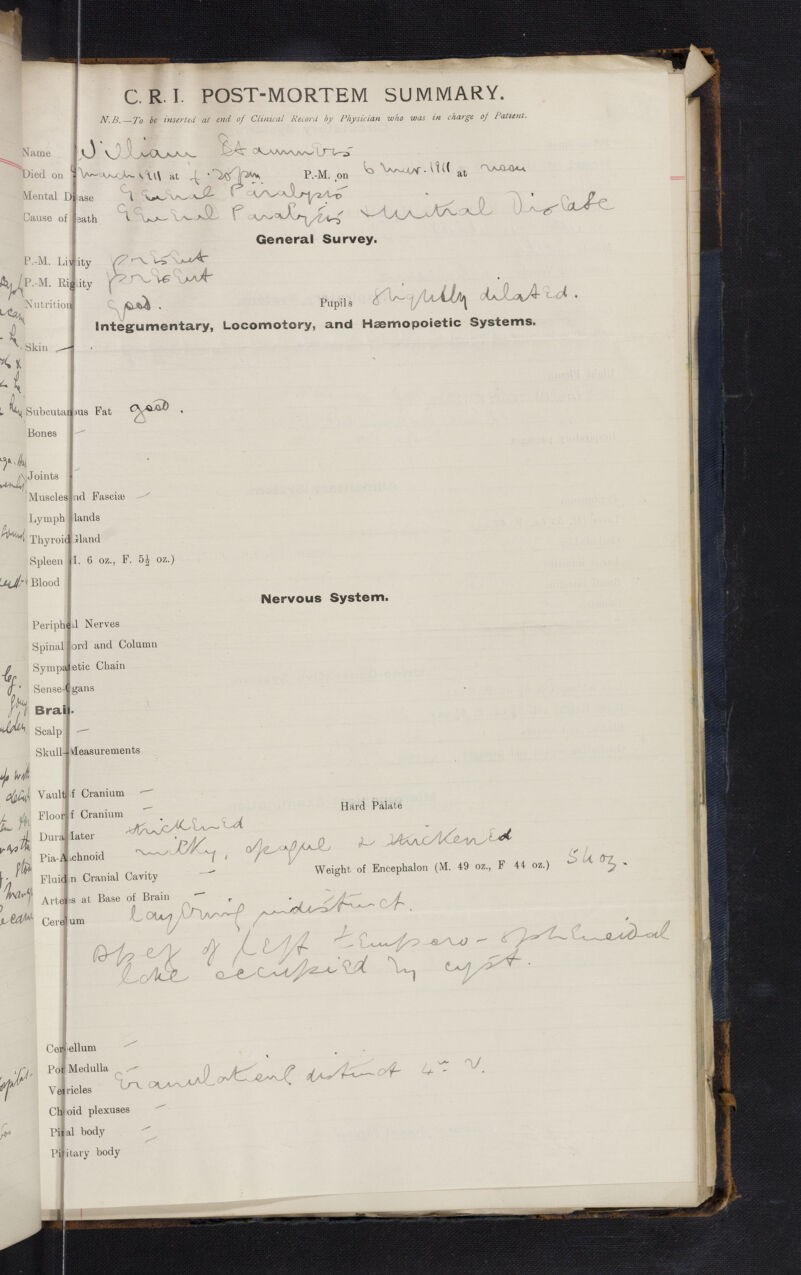 C. R. I. POST-MORTEM SUMMARY.
N.B.—To be inserted at end of Clinical Record by Physician who was in charge of Patient.
Name William
Died on March 1911 at pm P.-M. on 6 Mar. 1911 at noon
Mental Disease General Paralysis
Cause of Death General Paralysis & Mitral Disease
General Survey.
P.-M. Lividity present
P.-M. Rigidity present
Nutrition good. Pupils slightly dilated.
Integumentary, Locomotory, and Hæmopoietic Systems.
Skin —
Subcutaneous Fat good.
Bones —
Joints —
Muscles and Fasciæ —
Lymph Glands
Thyroid Gland
Spleen (M. 6 oz., F. 5½ oz.)
Blood
Nervous System.
Peripheral Nerves
Spinal Cord and Column
Sympathetic Chain
Sense-Organs
Brain.
Scalp —
Skull-Measurements
Vault of Cranium —
Floor of Cranium — Hard Palate
Dura Mater thickened
Pia-Arachnoid milky, opaque & thickened
Fluid in Cranial Cavity — Weight of Encephalon (M. 49 oz., F 44 oz.) oz.
Arteries at Base of Brain —
Cerebrum layering indistinct.
Apex of left tempero-sphenoidal
lobe occupied by cyst.
Cerebellum —
Pons Medulla —
Ventricles Granulations distinct 4th V.
Choroid plexuses —
Pineal body —
Pituitary body